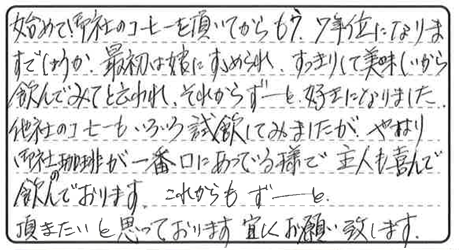 始めて御社のコーヒーを頂いてからもう、7年位になりま
すでしょうか、最初は娘にすすめられ、すっきりして美味しいから
飲んでみてと云われ、それからずーっと、好きになりました。
他社のコーヒーもいろいろ試飲してみましたが、やはり
御社の珈琲が一番口にあっている様で 主人も喜んで
飲んでおります。これからも ずーっと
頂きたいと思っております 宜しくお願い致します。